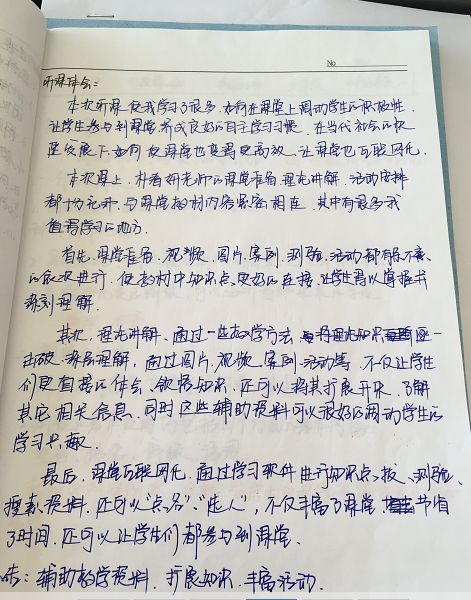 No
听课体会：
本次听课使我学习了很多，如何在课堂上调动学生的积极性，
让学生参与到课堂，养成良好的自主学习习惯。在当代社会的快
速发展下，如何使课堂也变得更高效，让课堂也互联网化。
本次课上，朴春妍老师的课堂准备，理论讲解，活动安排
都十分充分，与课堂教材内容紧密相连，其中有很多我
值得学习的地方。
首先，课堂准备，视频，图片，案例，测验，活动都有条不紊
的依次进行，使教材中知识点更好的连接，让学生得以掌握并
深刻理解。
其次，理论讲解，通过一些教学方法，逐一
击破，深层理解，通过图片，视频，案例，活动等，不仅让学生
们更直接的体会、领悟知识，还可以将其扩展开来，了解
其它相关信息，同时这些辅助资料可以很好的调动学生的
学习兴趣。
最后，课堂互联网化，通过学习软件进行知识点、测验、
搜索资料，还可以“点名”、“选人”，不仅丰富了课堂，节省
了时间，还可以让学生们都参与到课堂、
：辅助教学资料，扩展知识，丰富活动.